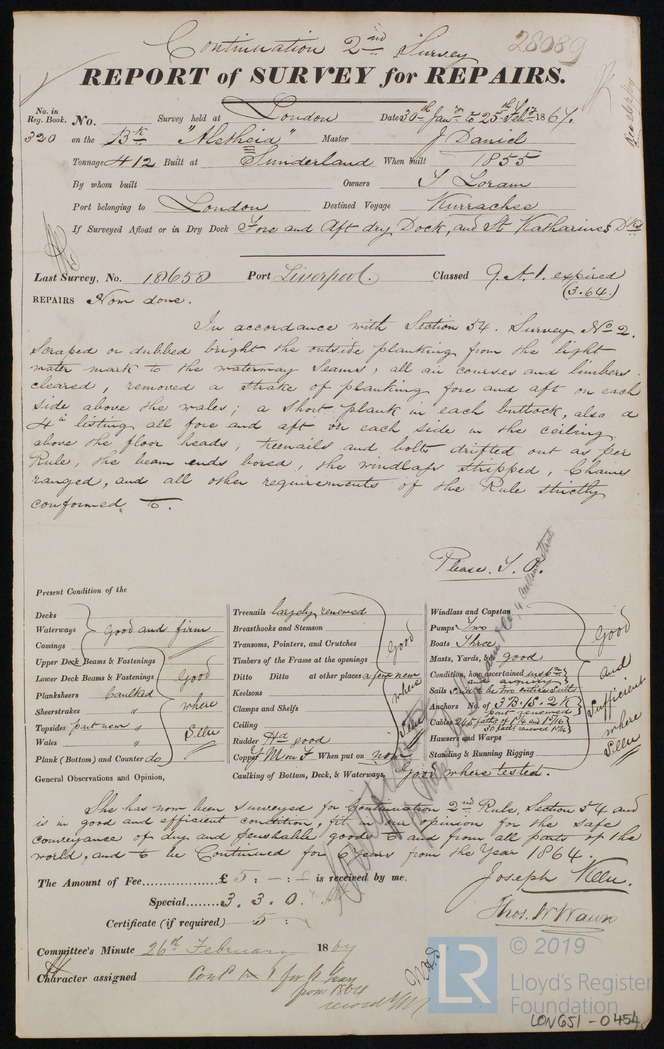 Continuation 2nd Survey
28089
REPORT of SURVEY for REPAIRS.
No. in Reg. Book. No. Survey held at London Date 30th Jany to 25th Feby 1864
320 on the Bk "Aletheia" Master J Daniel
Tonnage 412 Built at Sunderland When built 1855
By whom built Owners T Loram
Port belonging to London Destined Voyage Kurrachee
If Surveyed Afloat or in Dry Dock Fore and Aft dry Dock, and St Katharines Dks
Last Survey, No. 18658 Port Liverpool. Classed 9.A.1. expired
(3.64.)
REPAIRS Now done.
In accordance with Section 54. Survey No 2.
Scraped or dubbed bright the outside planking from the light
water mark to the waterway seams; all air courses and limbers
cleared, removed a strake of planking fore and aft on each
side above the wales; a short plank in each buttock, also a
4in listing all fore and aft on each side in the ceiling
above the floor heads, treenails and bolts drifted out as per
Rule, the beam ends bored, the windlass stripped, Chains
ranged, and all other requirements of the Rule strictly
conformed to.
Please T.O.
Present Condition of the
Decks
Waterways good and firm
Comings
Upper Deck Beams & Fastenings
Lower Deck Beams & Fastenings
Good where Seen
Planksheers Caulked
Sheerstrakes "
Topsides part new "
Wales "
Plank (Bottom) and Counter do
Treenails largely renewed
Breasthooks and Stemson
Transoms, Pointers, and Crutches
Timbers of the Frame at the openings
Ditto Ditto at other places a few new
Keelsons
Clamps and Shelfs
Ceiling
Good where Seen
Rudder Hd good
Copper Y M over F When put on now
Caulking of Bottom, Deck, & Waterways, good where tested.
Windlass and Capstan
Pumps Two
Boats Three
Masts, Yards, &c good
Condition, how ascertained
Sails said to be two entire Suits
Anchors No. of 3 B. 1 S. 2 K
part renewed
Cables
Hawsers and Warps
Standing & Running Rigging
Good and Sufficient where Seen
General Observations and Opinion,
She has now been surveyed for Continuation 2nd Rule, Section 54 and
is in good and efficient condition, fit in our opinion for the safe
conveyance of dry and perishable goods to and from all parts of the
world, and to be Continued for 6 Years from the Year 1864.
The Amount of Fee £ 5 : - : - is received by me,
Special 3. 3. 0.
Certificate (if required) 5
Joseph Keen.
Thos. W Wawn
Committee's Minute 26th February 1864
Character assigned Cont A 1 for 6 Years
from 1864
© 2019
LR
Lloyd's Register
Foundation
LON651-0454